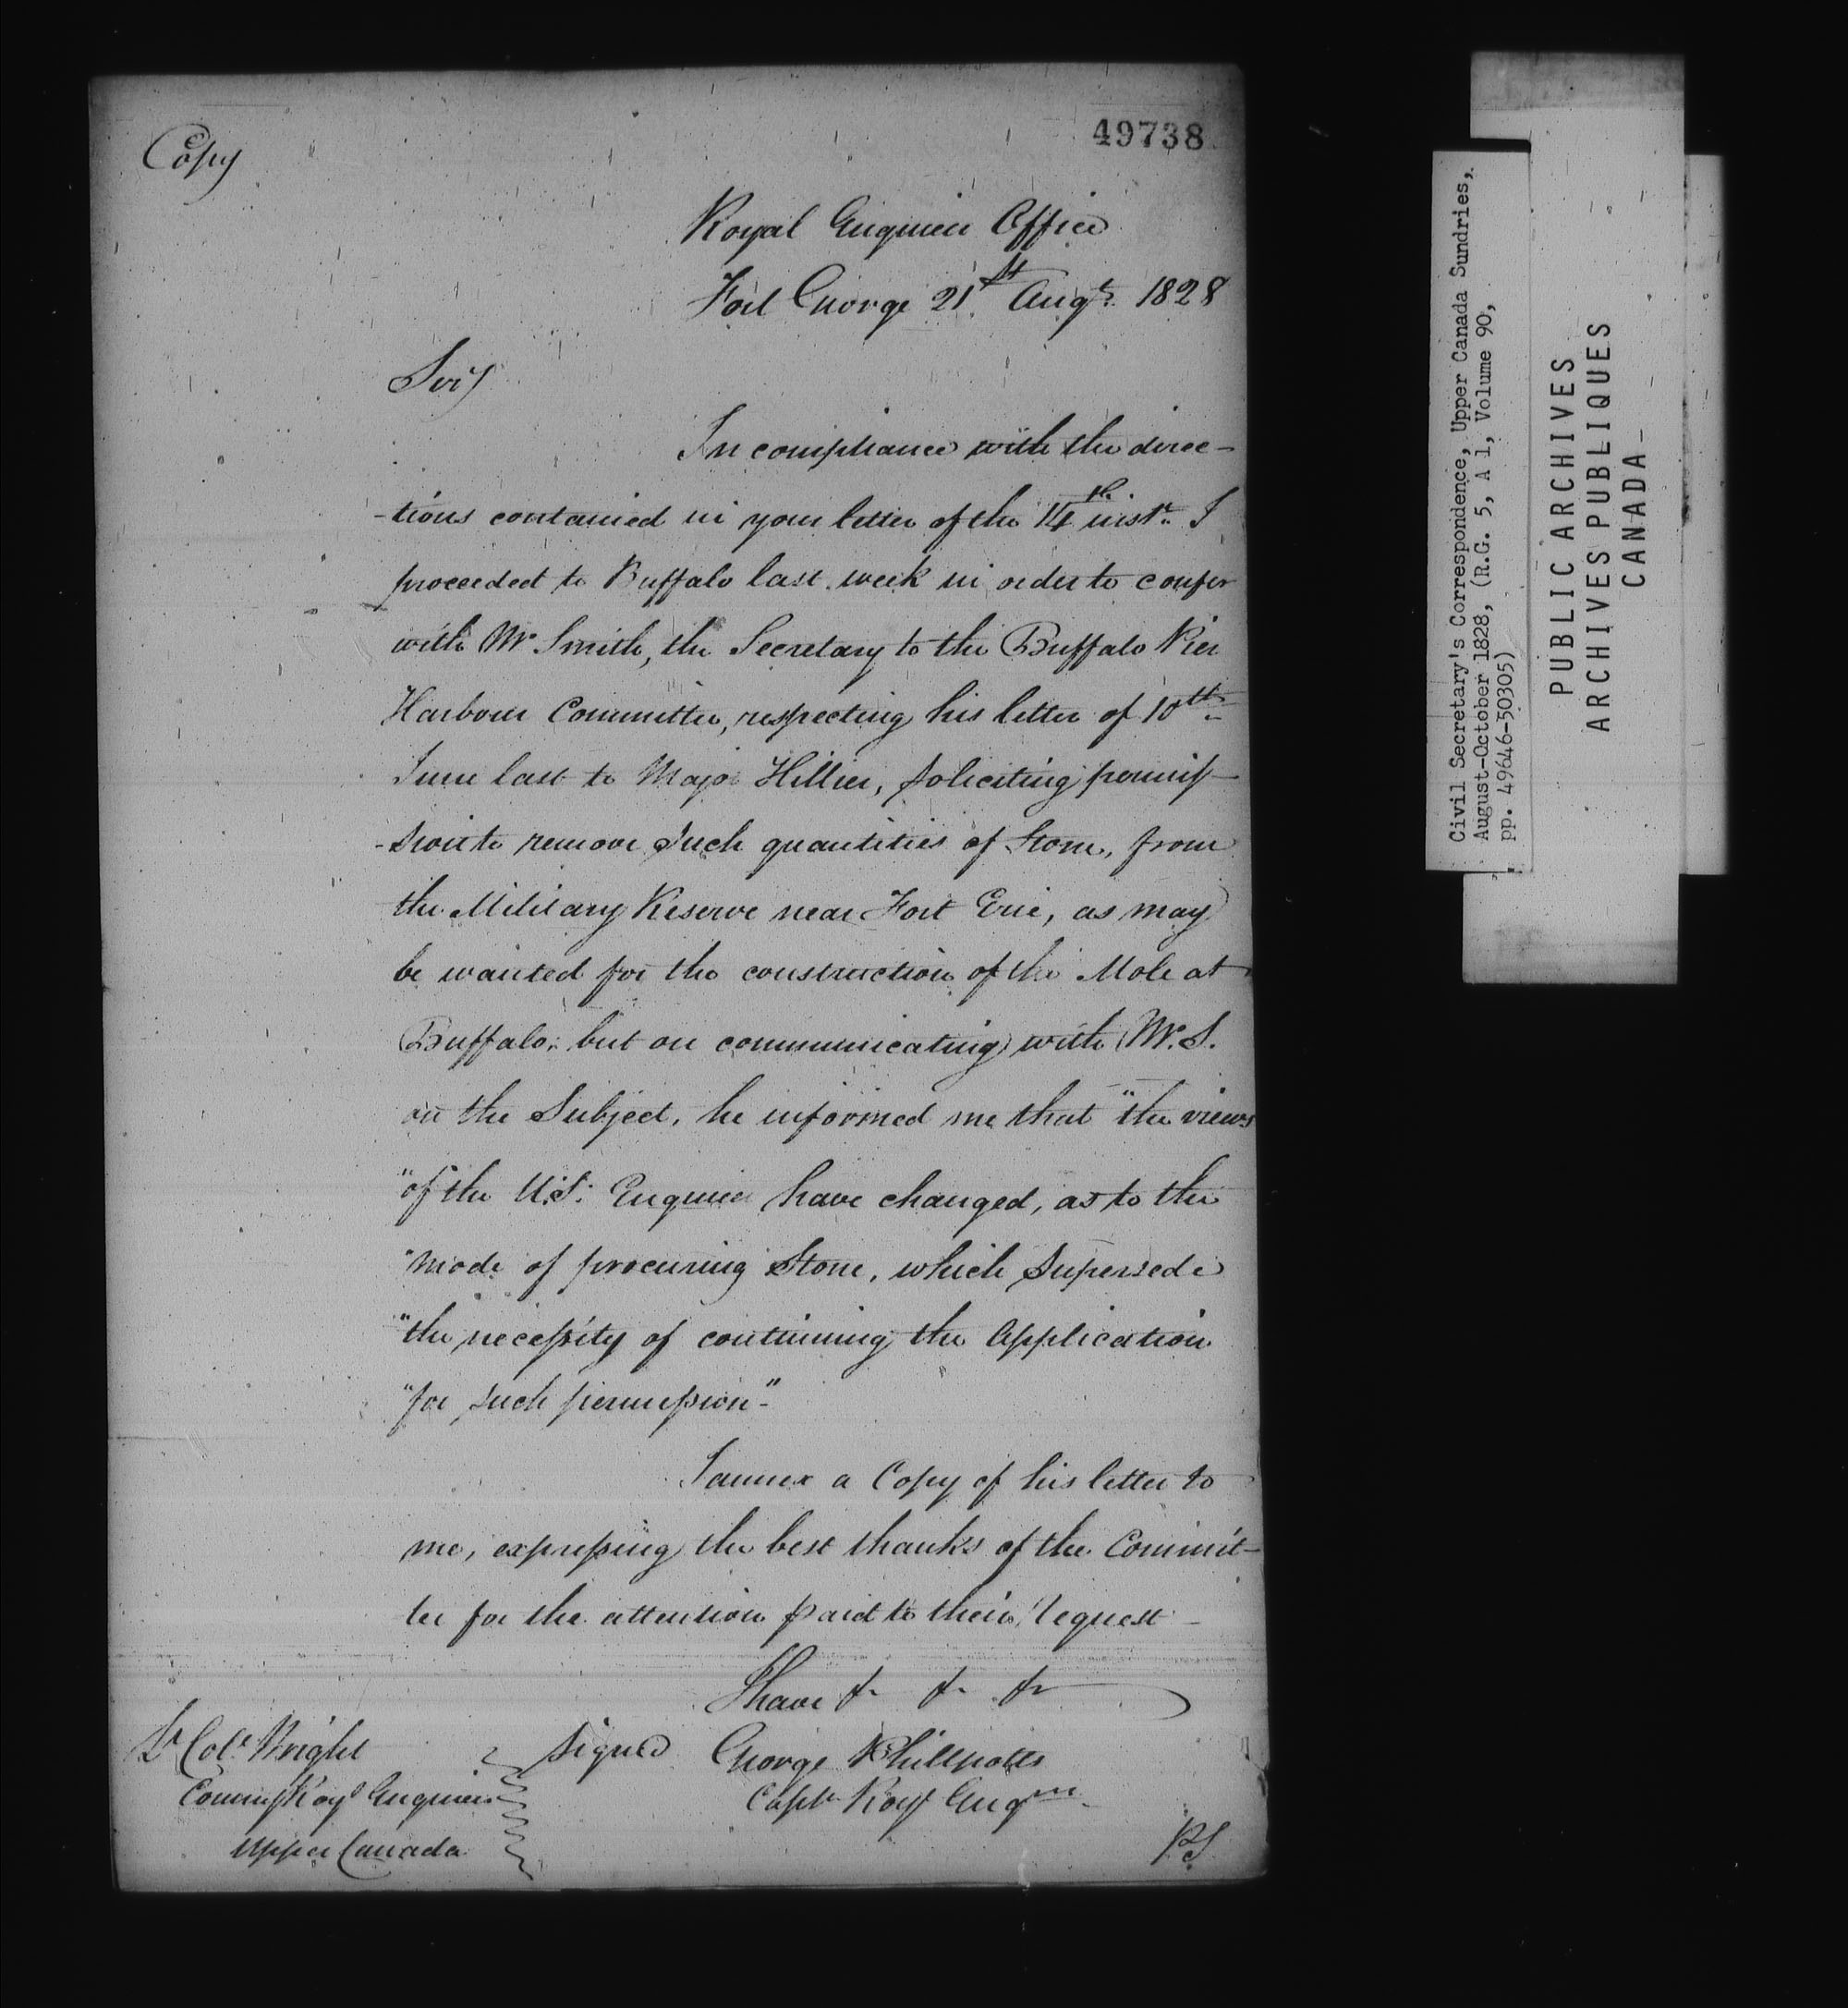 Copy
49738
Royal Engineer Office
Fort George 21st Augt. 1828
Sir,
In compliance with the direc-
-tions contained in your letter of the 14th inst. I
proceeded to Buffalo last week in order to confer
with Mr Smith, the Secretary to the Buffalo Pier
Harbour Committee, respecting his letter of 10th
June last to Major Hillier, soliciting permis-
-sion to remove such quantities of Stone, from
the Military Reserve near Fort Erie, as may
be wanted for the construction of the Mole at
Buffalo; but on communicating with Mr. S.
on the Subject, he informed me that "the views
"of the U.S. Engineer have changed, as to the
"mode of procuring Stone, which supersede
"the necessity of continuing the Application
"for such permission"-
I annex a Copy of his letter to
me, expressing the best thanks of the Commit-
tee for the attention paid to their request -
I have &c &c &c
Signed George Phillpotts
Capt. Royl Engrs
Lt Col. Wright
Commg Royl Engineer
Upper Canada
PS
Civil Secretary's Correspondence, Upper Canada Sundries,
August-October 1828, (R.G. 5, A 1, Volume 90,
pp. 49646-50305)
PUBLIC ARCHIVES
ARCHIVES PUBLIQUES
CANADA